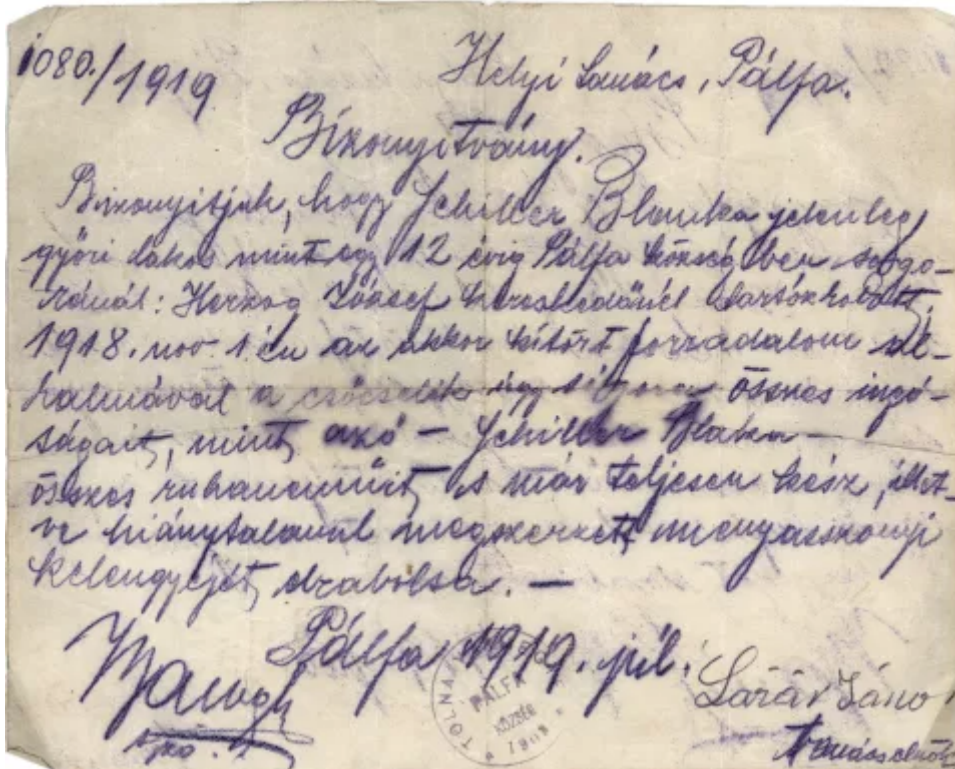 1080./1919
Helyi Tanács, Pálfa.
Bizonyitvány.
Bizonyitjuk, hogy Schiller Blanka jelenleg
győri lakos mint egy 12 évig Pálfa község ben sógo-
ránál: Herzog József kereskedőnél tartózkodott,
1918. nov. 1 én az akkor kitört forradalom al-
kalmával a csőcselék úgy sógora összes ingó-
ságait, mint azó — Schiller Blaka —
összes ruhanemüit, s már teljesen kész, illet-
ve hiánytalanul megszerzett menyasszonyi
kelengyéjét elrabolta. —
Pálfa 1919. júl.
Lázár Jáno
jző.
Tanácselnök
TOLNA
PÁLFA
KÖZSÉG